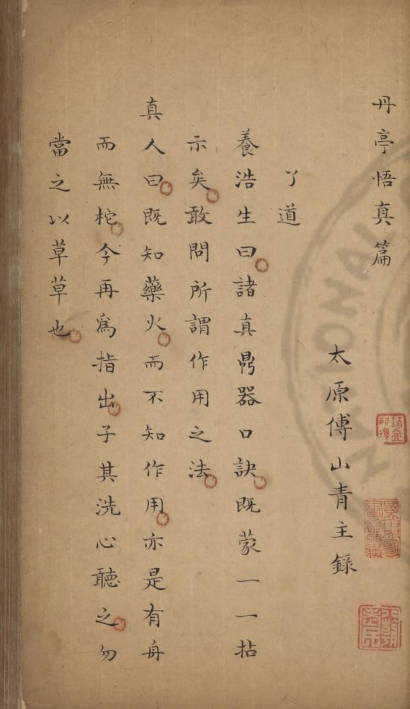 丹亭悟真篇
太原傅山青主錄
了道
養浩生曰諸真鼎器口訣既蒙一一拈
示矣敢問所謂作用之法
真人曰既知藥火而不知作用亦是有舟
而無柁今再為指出子其洗心聽之勿
當之以草草也